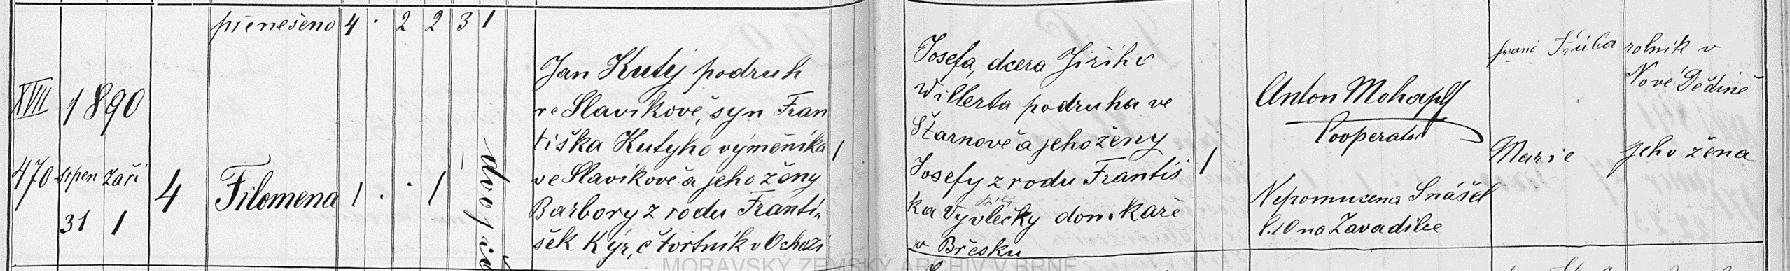 přenešeno 4 . 2 2 3 1
XVII 1890
470 srpen září
31 1
4 Filomena 1 . 1
dvojče
Jan Kutý podruh
ve Slavíkově, syn Fran
tiška Kutyho výměníka
ve Slavíkově a jeho ženy
Barbory z rodu Franti-
šek Kýr, čtvrtník v Ochozi
1
Josefa, dcera Jiřího
Willerta podruha ve
Starnově a jeho ženy
Josefy z rodu Františ
ka Vyvlečky domkaře
v Břesku
1
Anton Mohapl
Cooperator
Nepomucena Snášel
z Zavadilce
Fraňe Trúba rolník v
Nové Dědině
Marie jeho žena
MORAVSKÝ ZEMSKÝ ARCHIV V BRNĚ